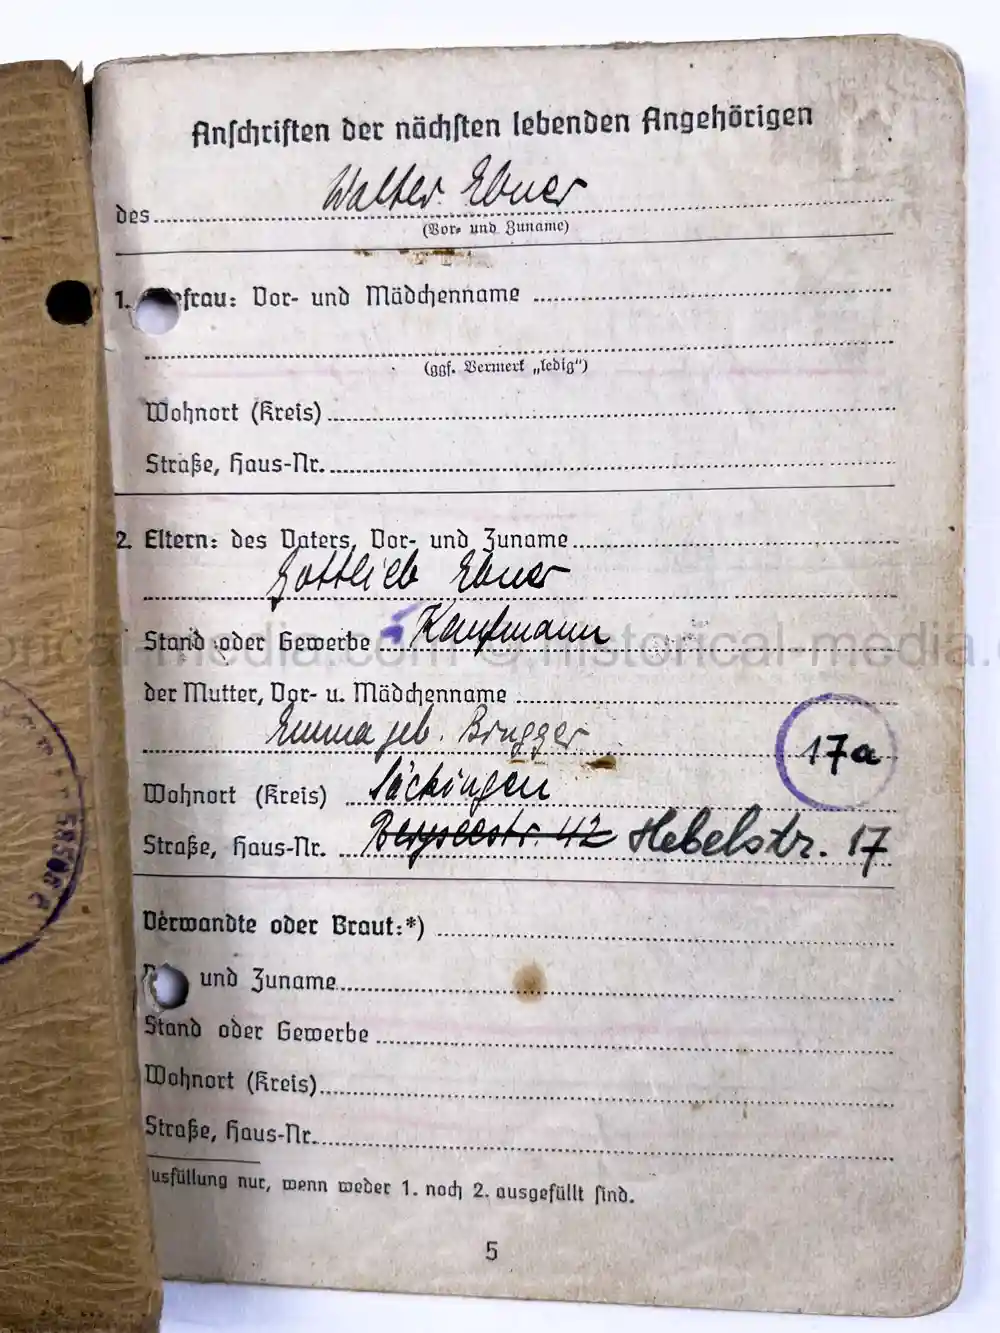 Anschriften der nächsten lebenden Angehörigen
des Walter Ebner
(Vor- und Zuname)
1. efrau: Vor- und Mädchenname
(ggf. Vermerk „ledig“)
Wohnort (Kreis)
Straße, Haus-Nr.
2. Eltern: des Vaters, Vor- und Zuname
Gottlieb Ebner
Stand oder Gewerbe Kaufmann
historical-media.com © historical-media.com
der Mutter, Vor- u. Mädchenname
Emma geb. Brugger
17a
Wohnort (Kreis) Säckingen
Straße, Haus-Nr. Bergseestr. 42 Hebelstr. 17
Verwandte oder Braut:*)
und Zuname
Stand oder Gewerbe
Wohnort (Kreis)
Straße, Haus-Nr.
usfüllung nur, wenn weder 1. noch 2. ausgefüllt sind.
5